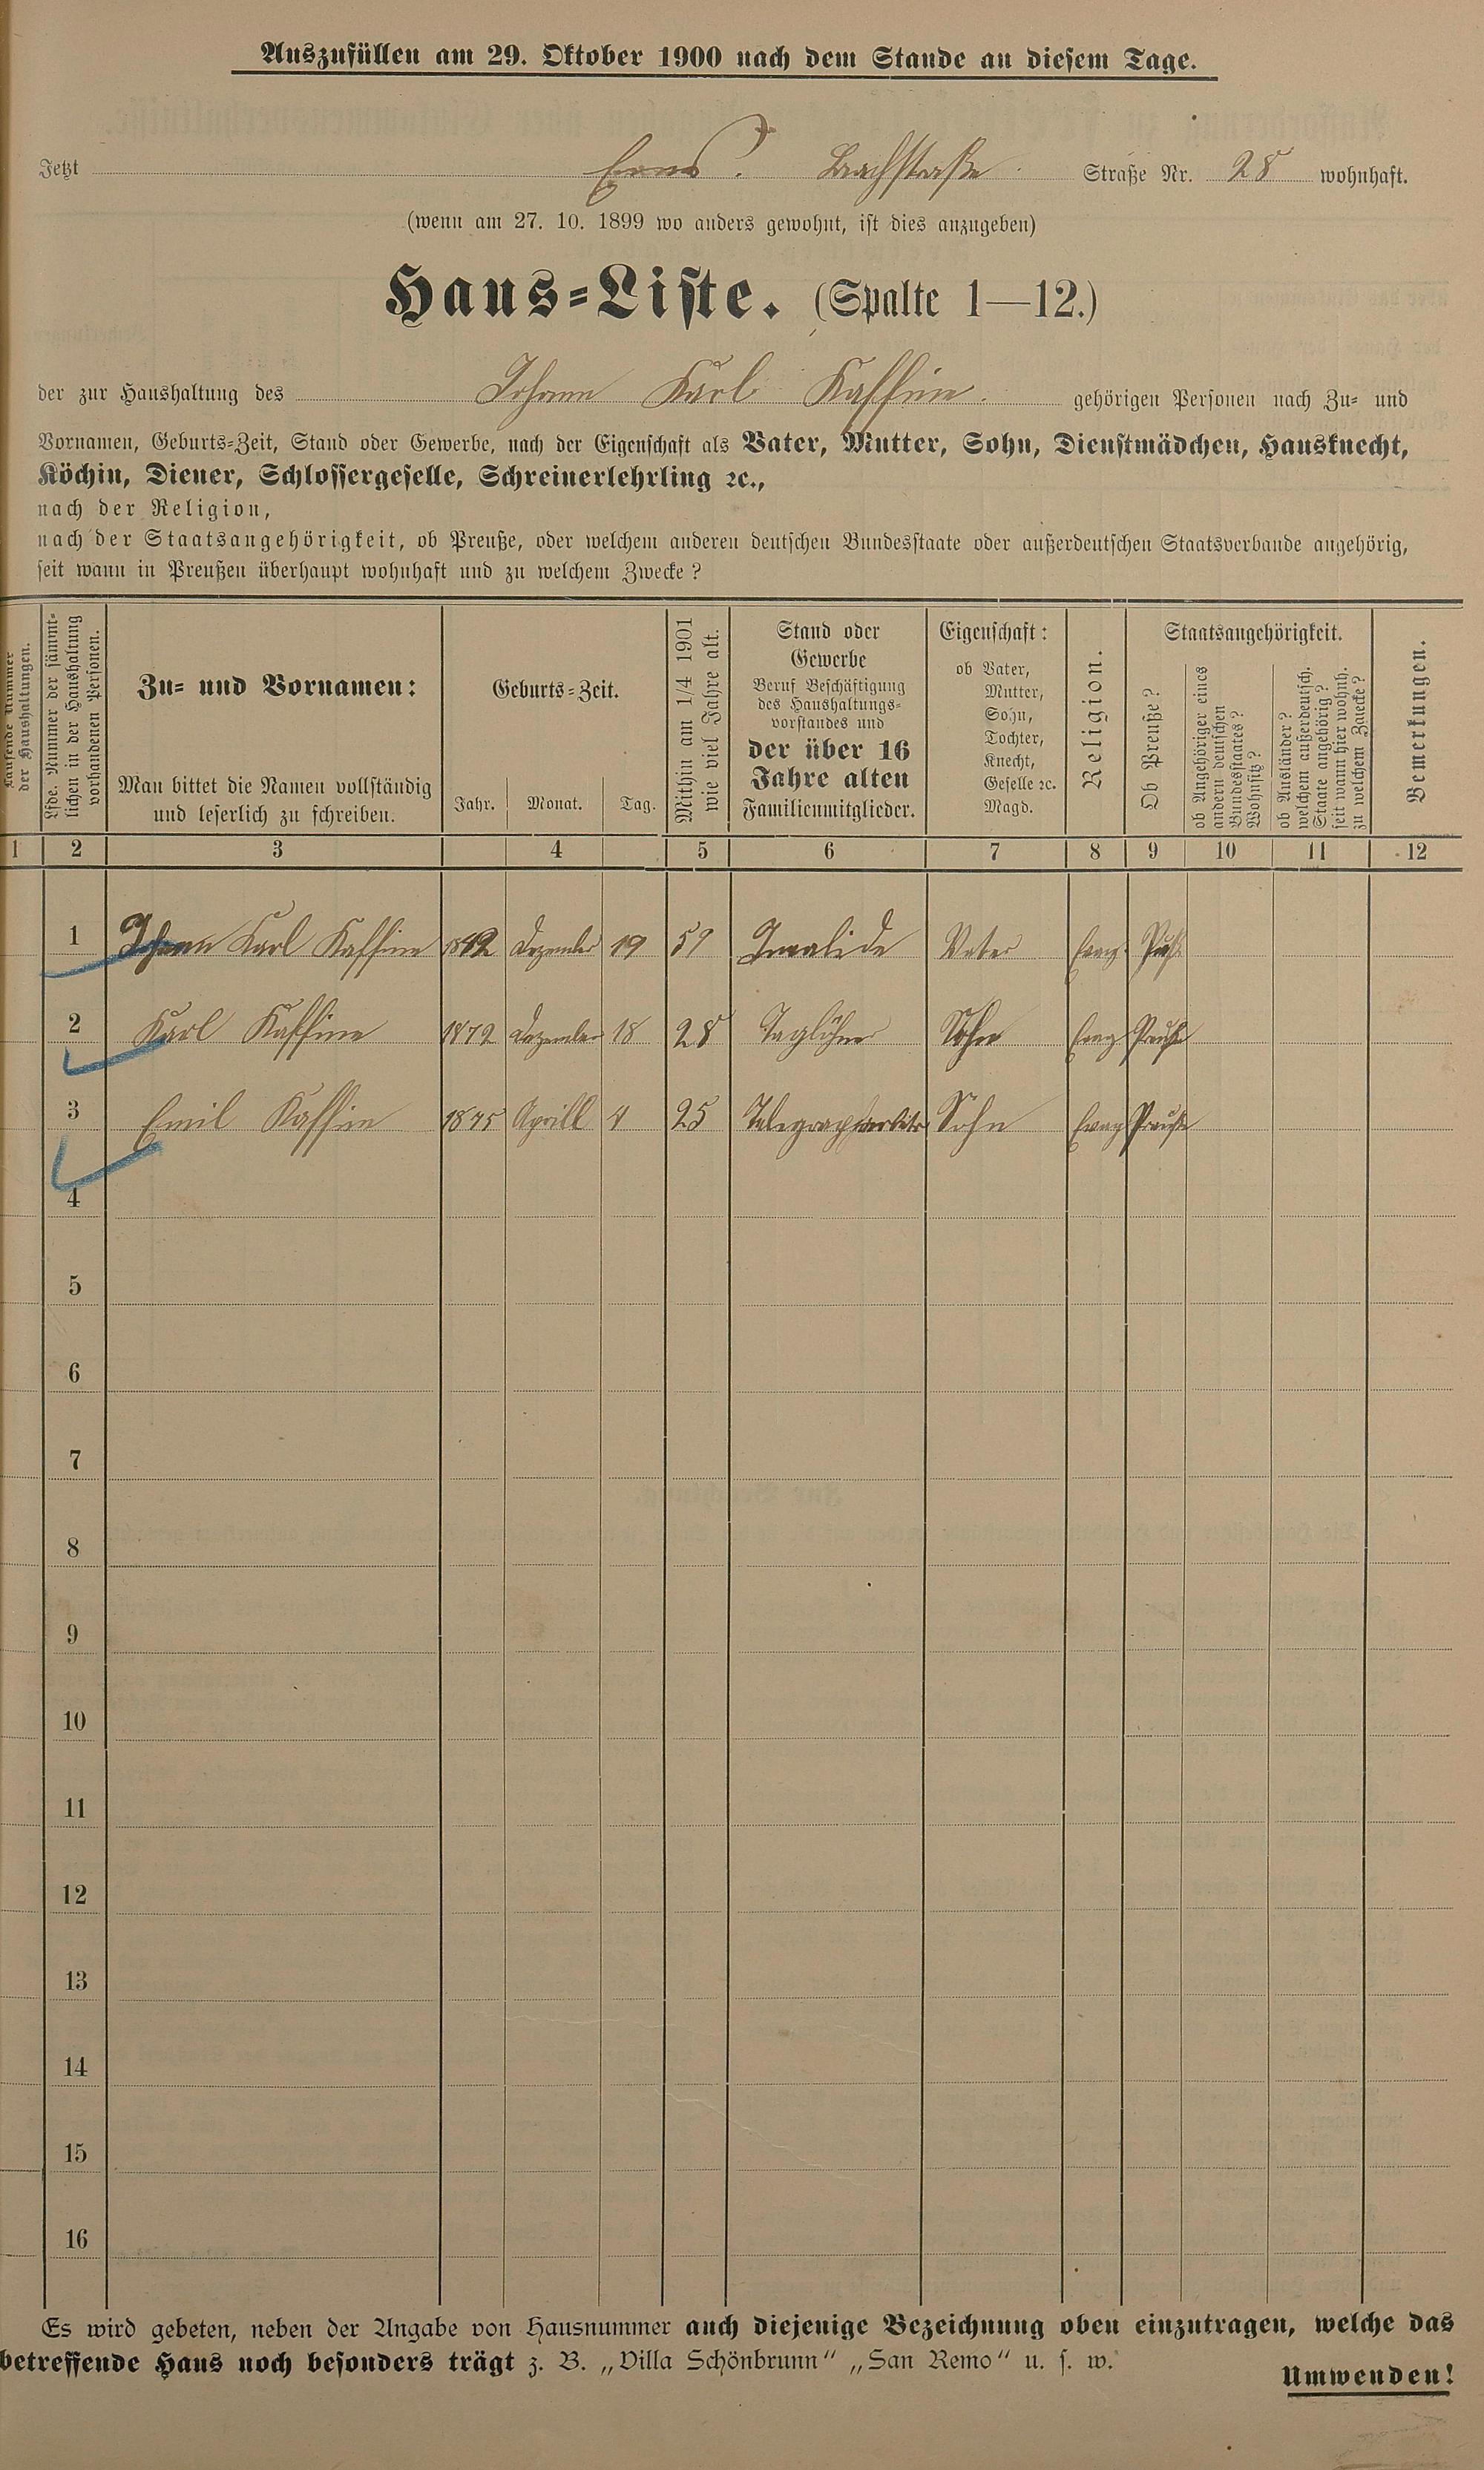 Auszufüllen am 29. Oktober 1900 nach dem Stande an diesem Tage.
Jetzt Ems. Bachstraße Straße Nr. 28 wohnhaft.
(wenn am 27. 10. 1899 wo anders gewohnt, ist dies anzugeben)
Haus=Liste. (Spalte 1—12.)
der zur Haushaltung des Johann Karl Kaffine. gehörigen Personen nach Zu= und
Vornamen, Geburts=Zeit, Stand oder Gewerbe, nach der Eigenschaft als Vater, Mutter, Sohn, Dienstmädchen, Hausknecht,
Köchin, Diener, Schlossergeselle, Schreinerlehrling ꝛc.,
nach der Religion,
nach der Staatsangehörigkeit, ob Preuße, oder welchem anderen deutschen Bundesstaate oder außerdeutschen Staatsverbande angehörig,
seit wann in Preußen überhaupt wohnhaft und zu welchem Zwecke?
Laufende Nummer
der Haushaltungen.
Lfde. Nummer der sämmt=
lichen in der Haushaltung
vorhandenen Personen.
Zu= und Vornamen:
Man bittet die Namen vollständig
und leserlich zu schreiben.
Geburts=Zeit.
Jahr. Monat. Tag.
Mithin am 1/4 1901
wie viel Jahre alt.
Stand oder
Gewerbe
Beruf Beschäftigung
des Haushaltungs=
vorstandes und
der über 16
Jahre alten
Familienmitglieder.
Eigenschaft:
ob Vater,
Mutter,
Sohn,
Tochter,
Knecht,
Geselle ꝛc.
Magd.
Religion.
Staatsangehörigkeit.
Ob Preuße?
ob Angehöriger eines
andern deutschen
Bundesstaates?
Wohnsitz?
ob Ausländer?
welchem außerdeutsch.
Staate angehörig?
seit wann hier wohnh.
zu welchem Zwecke?
Bemerkungen.
1 2 3 4 5 6 7 8 9 10 11 12
1 Johann Karl Kaffine 1842 Dezember 19 59 Invalide Vater Evang.
2 Karl Kaffine 1872 Dezember 18 28 Taglöhner Sohn Evag Preuße
3 Emil Kaffine 1875 Aprill 4 25 Telegraphenarbeiter Sohn Evag Preuße
4
5
6
7
8
9
10
11
12
13
14
15
16
Es wird gebeten, neben der Angabe von Hausnummer auch diejenige Bezeichnung oben einzutragen, welche das
betreffende Haus noch besonders trägt z. B. „Villa Schönbrunn“ „San Remo“ u. s. w.
Umwenden!